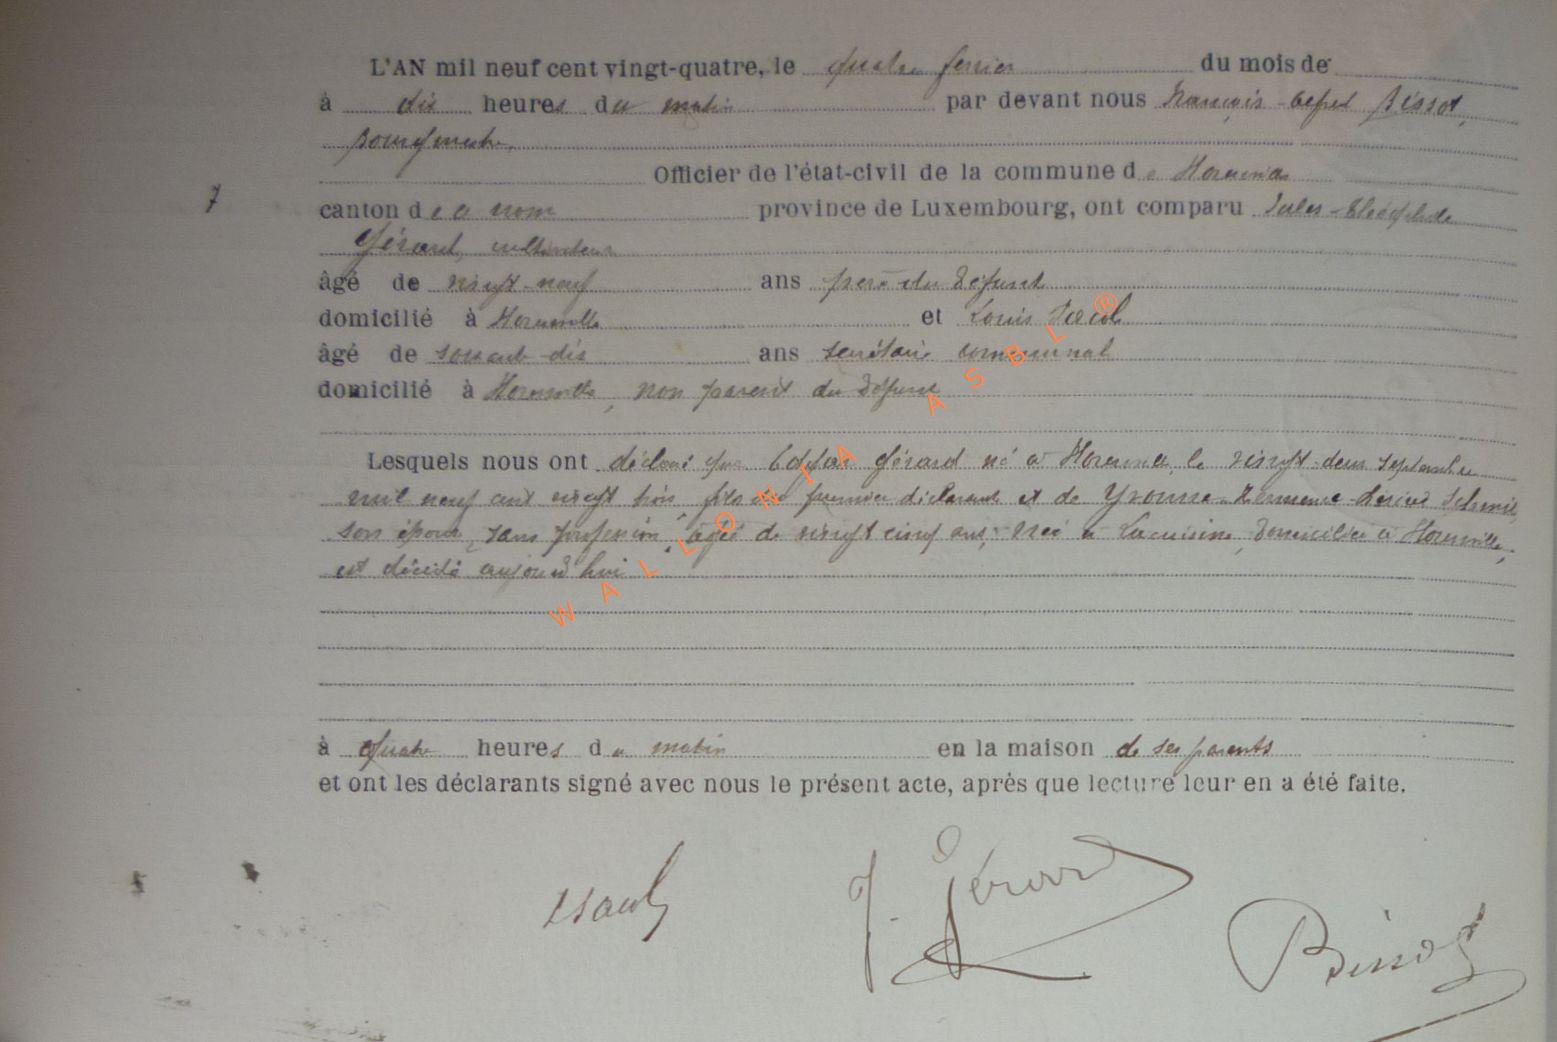 L'AN mil neuf cent vingt-quatre, le quatre fevrier du mois de
à dix heures du matin par devant nous François Bissot,
Bourgmestre,
Officier de l'état-civil de la commune de
7
canton de province de Luxembourg, ont comparu Jules-Théophile
Gérard, cultivateur
âgé de vingt-neuf ans père du défunt
domicilié à et Louis
âgé de ans secrétaire communal
domicilié à , non parent du défunt
Lesquels nous ont déclaré que Edgar Gérard né à le vingt-deux septembre
mil neuf cent vingt trois, fils du premier déclarant et de Yvonne
son épouse, sans profession, âgée de vingt cinq ans, née à Lacuisine, domiciliée à
est décédé aujourd'hui
à quatre heures du matin en la maison de ses parents
et ont les déclarants signé avec nous le présent acte, après que lecture leur en a été faite.
J. Gérard
Bissot
WALLONIA ASBL®